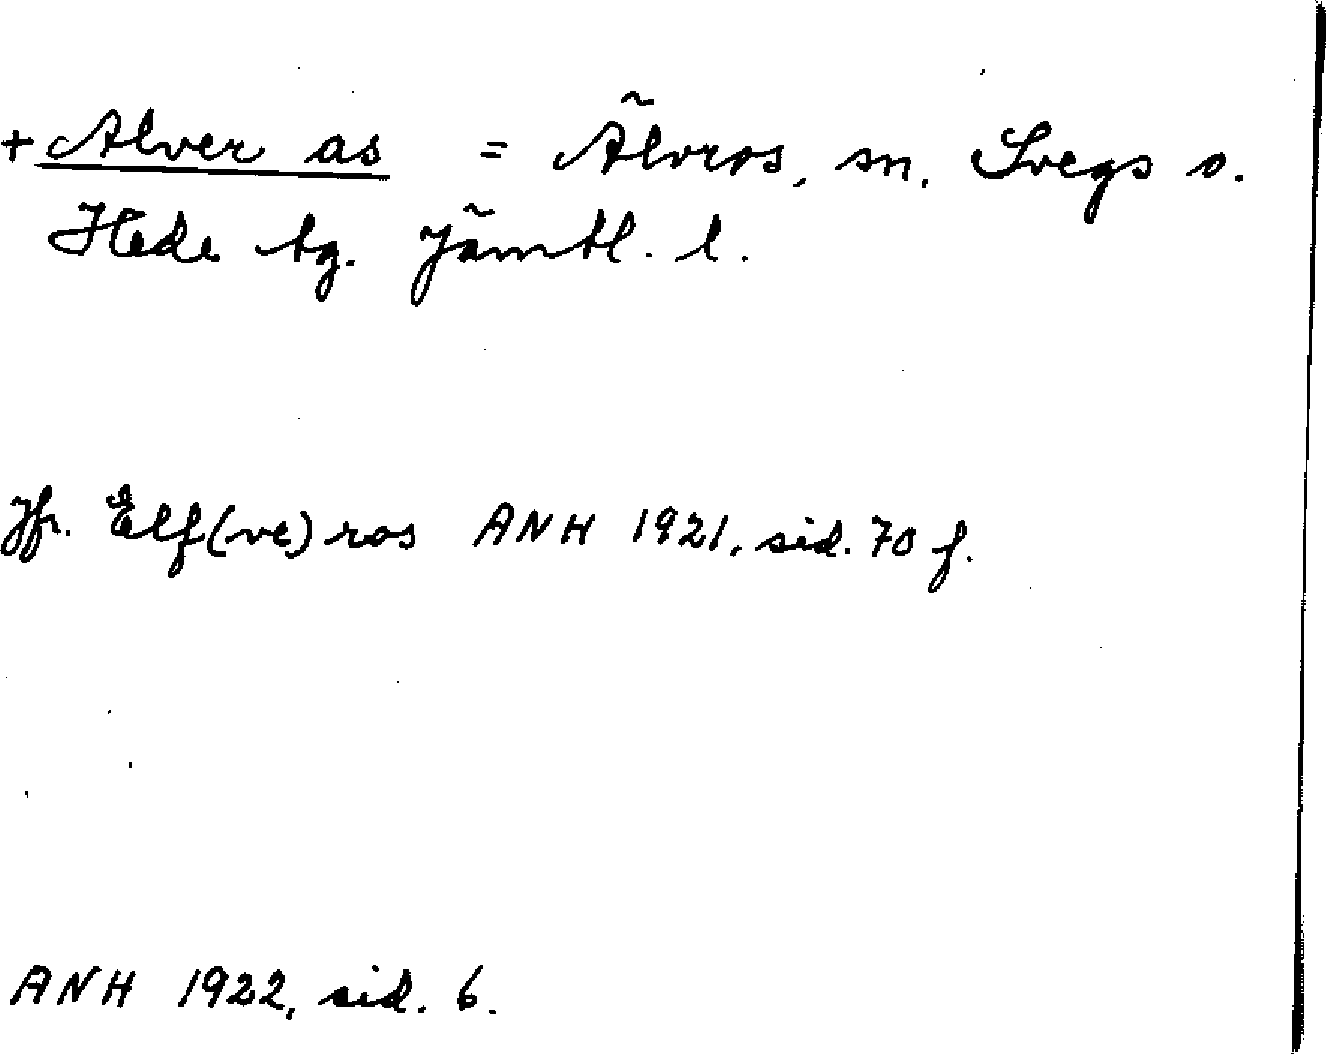 + Alver as = Älvros, sn. Svegs o.
Hede tg. Jämtl. l.
Jfr. Elf(ve)ros ANH 1921, sid. 70 f.
ANH 1922, sid. 6.